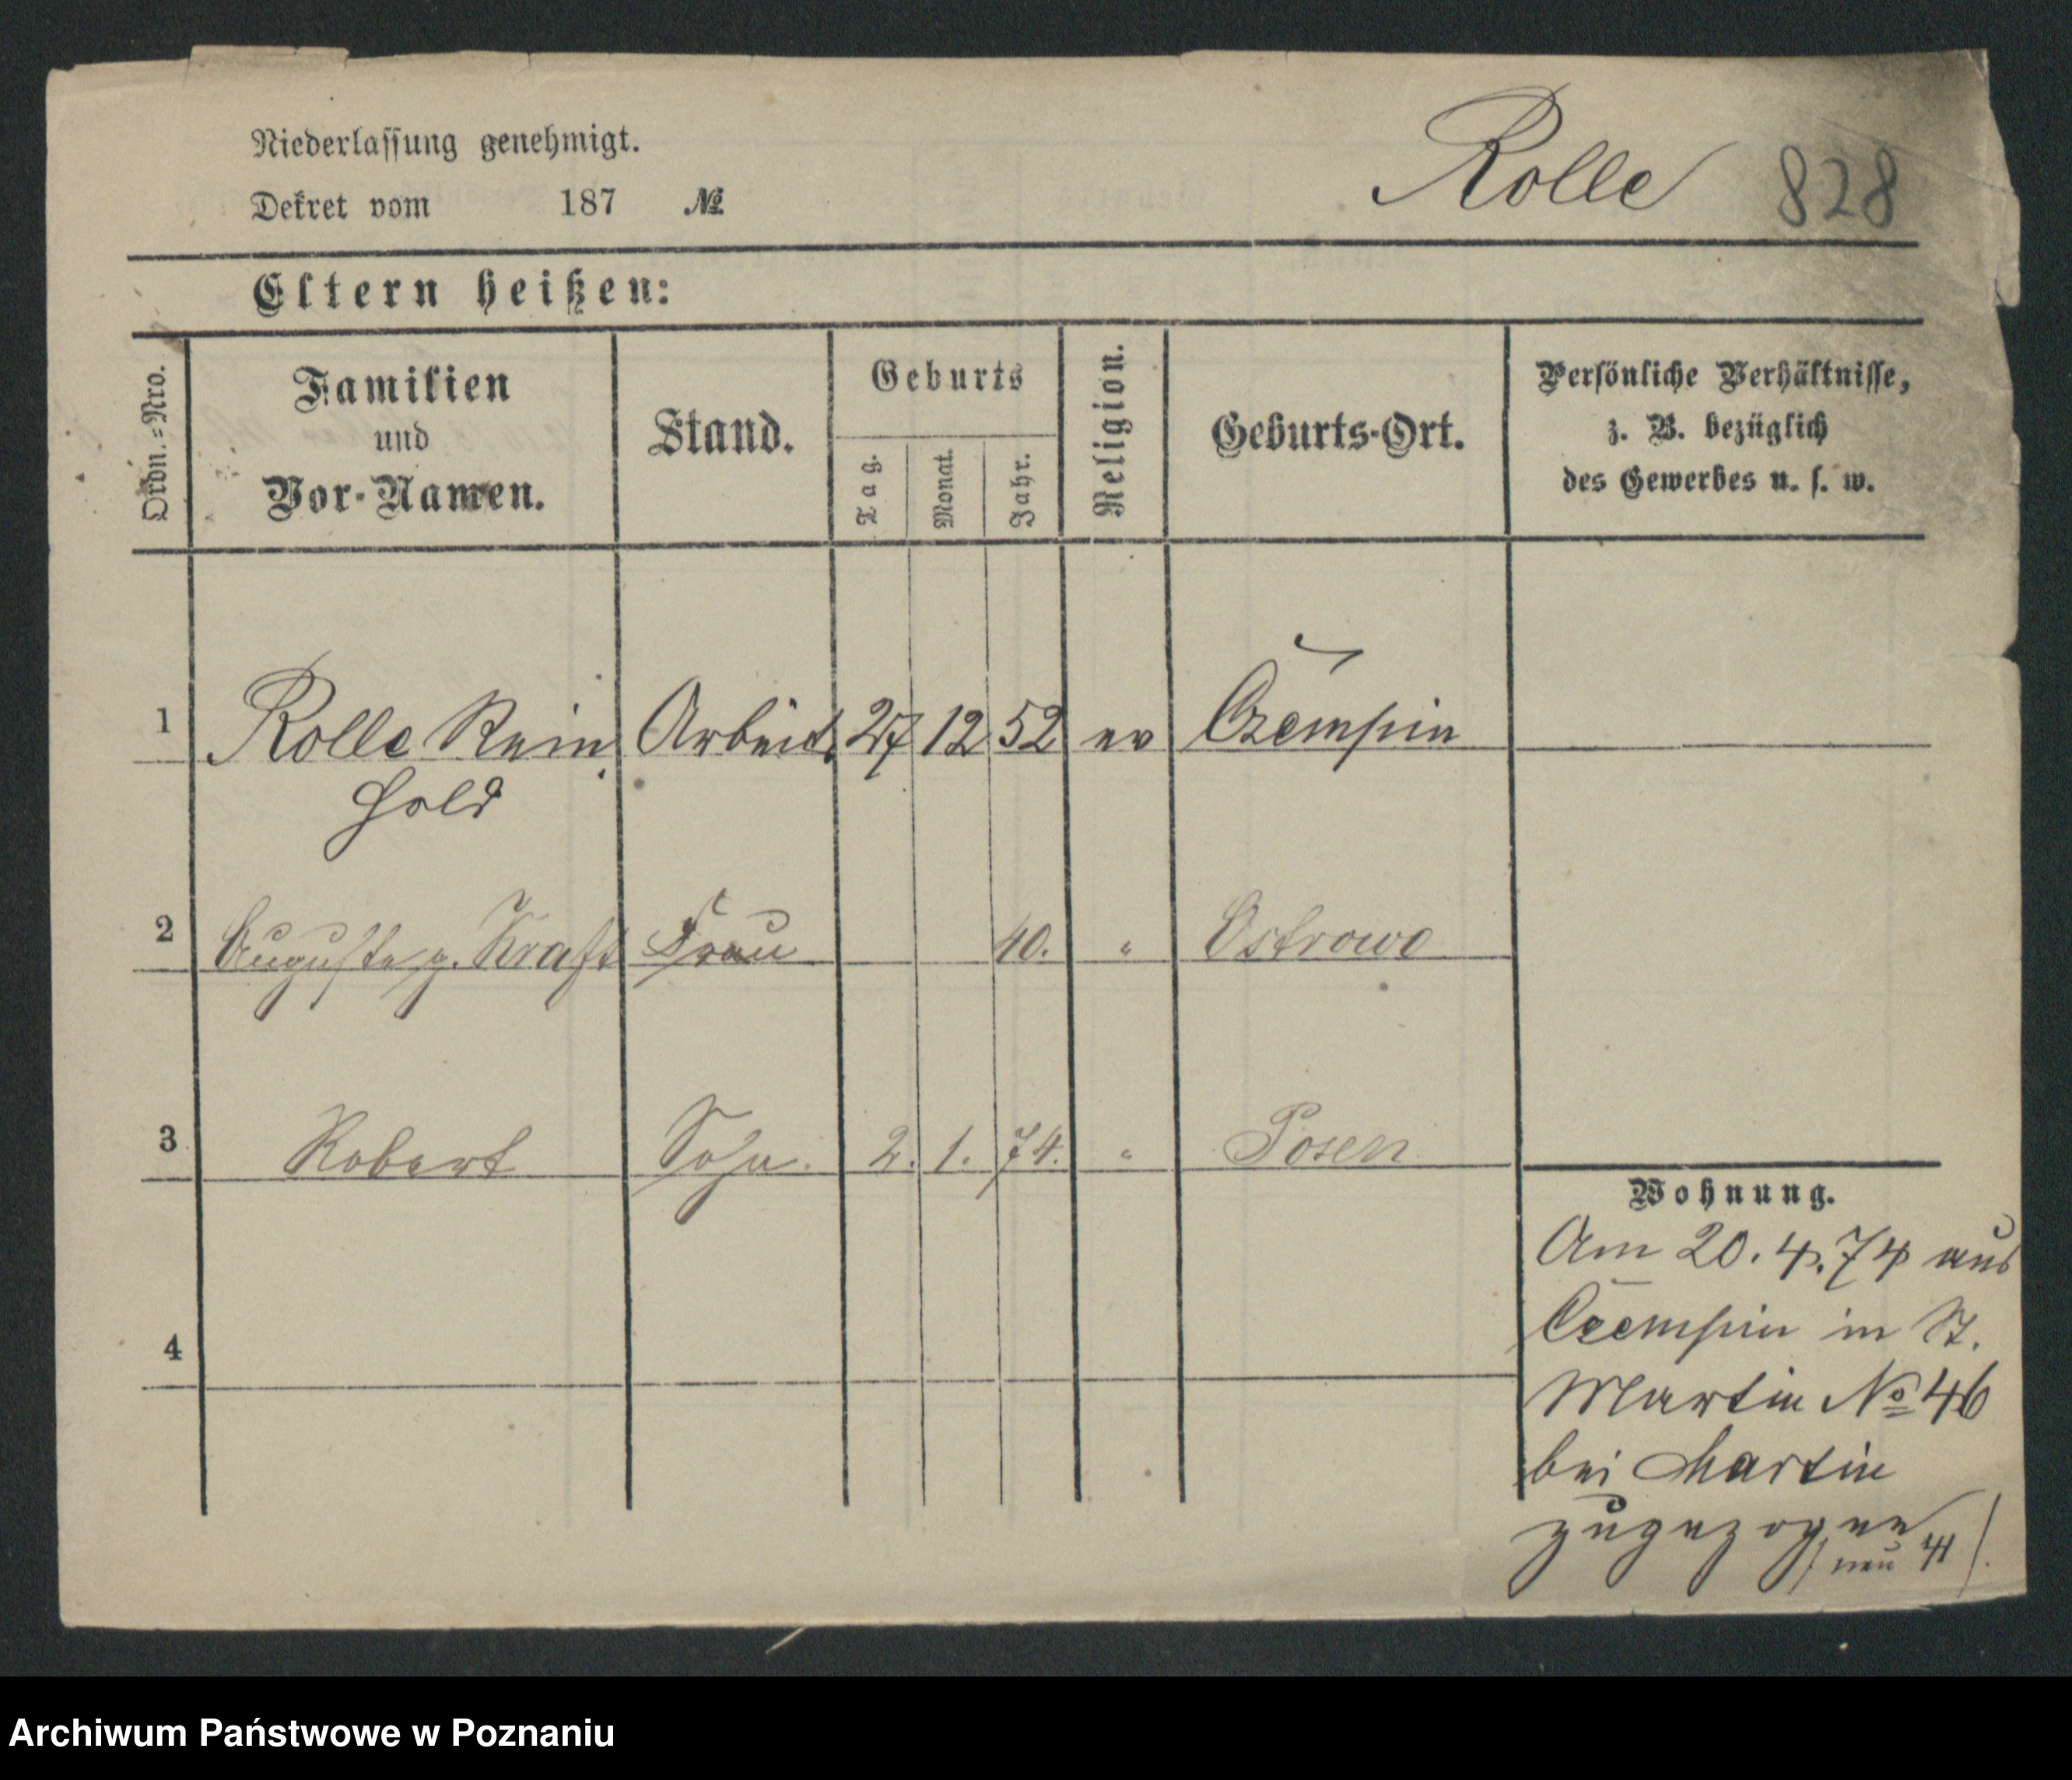 Niederlassung genehmigt.
Dekret vom 187 №
Rolle 828
Eltern heißen:
Ordn.=Nro.
Familien
und
Vor-Namen.
Stand.
Geburts
Tag.
Monat.
Jahr.
Religion.
Geburts-Ort.
Persönliche Verhältnisse,
z. B. bezüglich
des Gewerbes u. s. w.
1 Rolle Rein Arbeit. 27 12 52 ev Czempin
hold
2 Auguste g. Kraft Frau 40. " Ostrowo
3 Robert Sohn. 2. 1. 74. " Posen
Wohnung.
Am 20.4.74 aus
Czempin in St.
Martin № 46
bei Martin
zugezogen
/neu 41/.
4
Archiwum Państwowe w Poznaniu